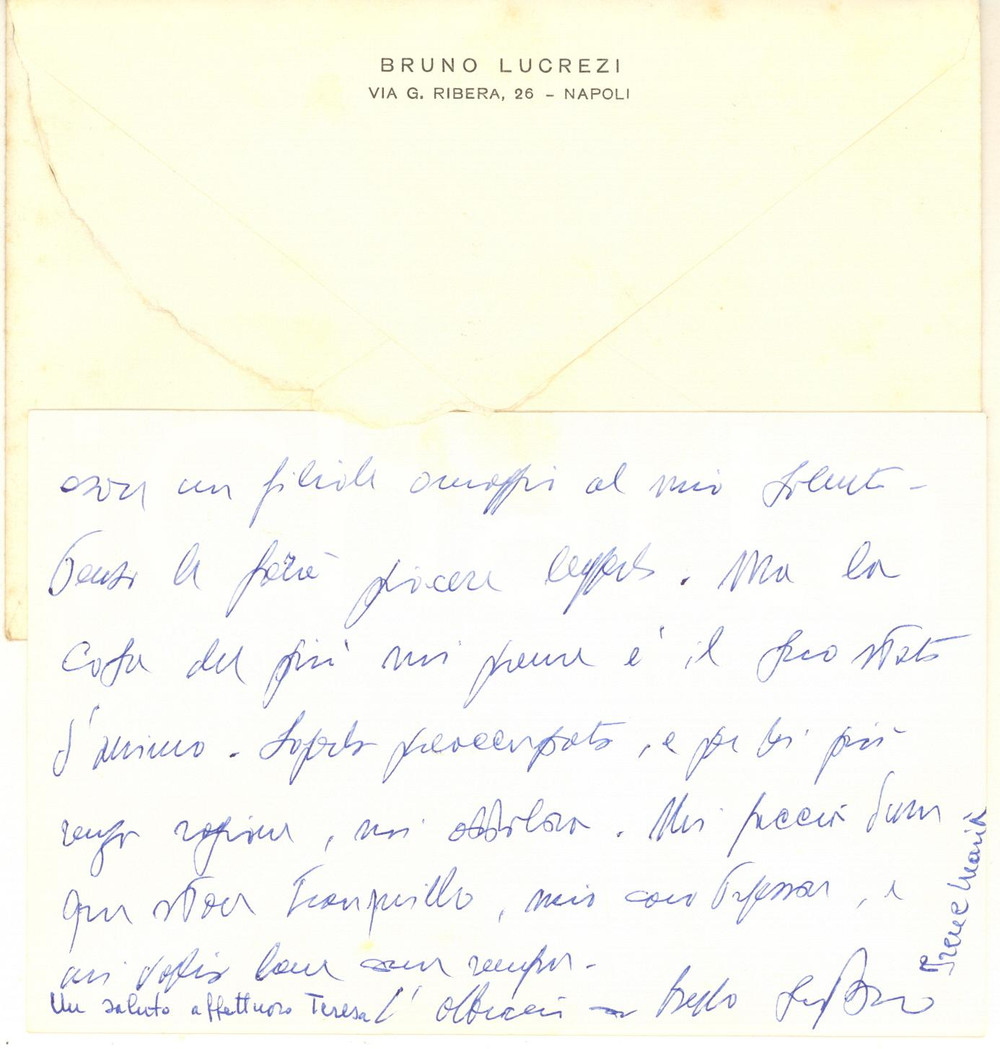 BRUNO LUCREZI
VIA G. RIBERA, 26 – NAPOLI
un filiale omaggio al mio
le farà piacere leggerlo. Ma la
cosa che più mi preme è il suo stato
d'animo. Saperlo preoccupato, e per di più
senza ragione, mi addolora. Mi faccia dun
que stare tranquillo, mio caro Professore, e
mi voglia bene sempre.
L'abbraccio suo Bruno
Un saluto affettuoso Teresa
Irene Maria